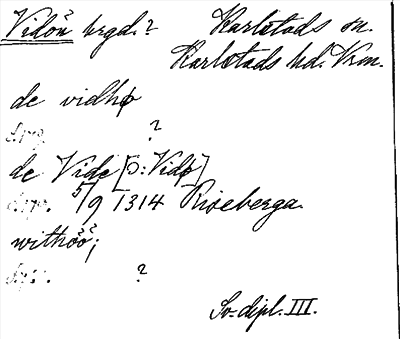 Vidön hrgd.? Karlstads sn.
Karlstads hd. Vrm.
de vidhø
?
de Vide [ɔ: Vidø]
5/9 1314 Riseberga.
withöö;
?
Sv. dipl. III.